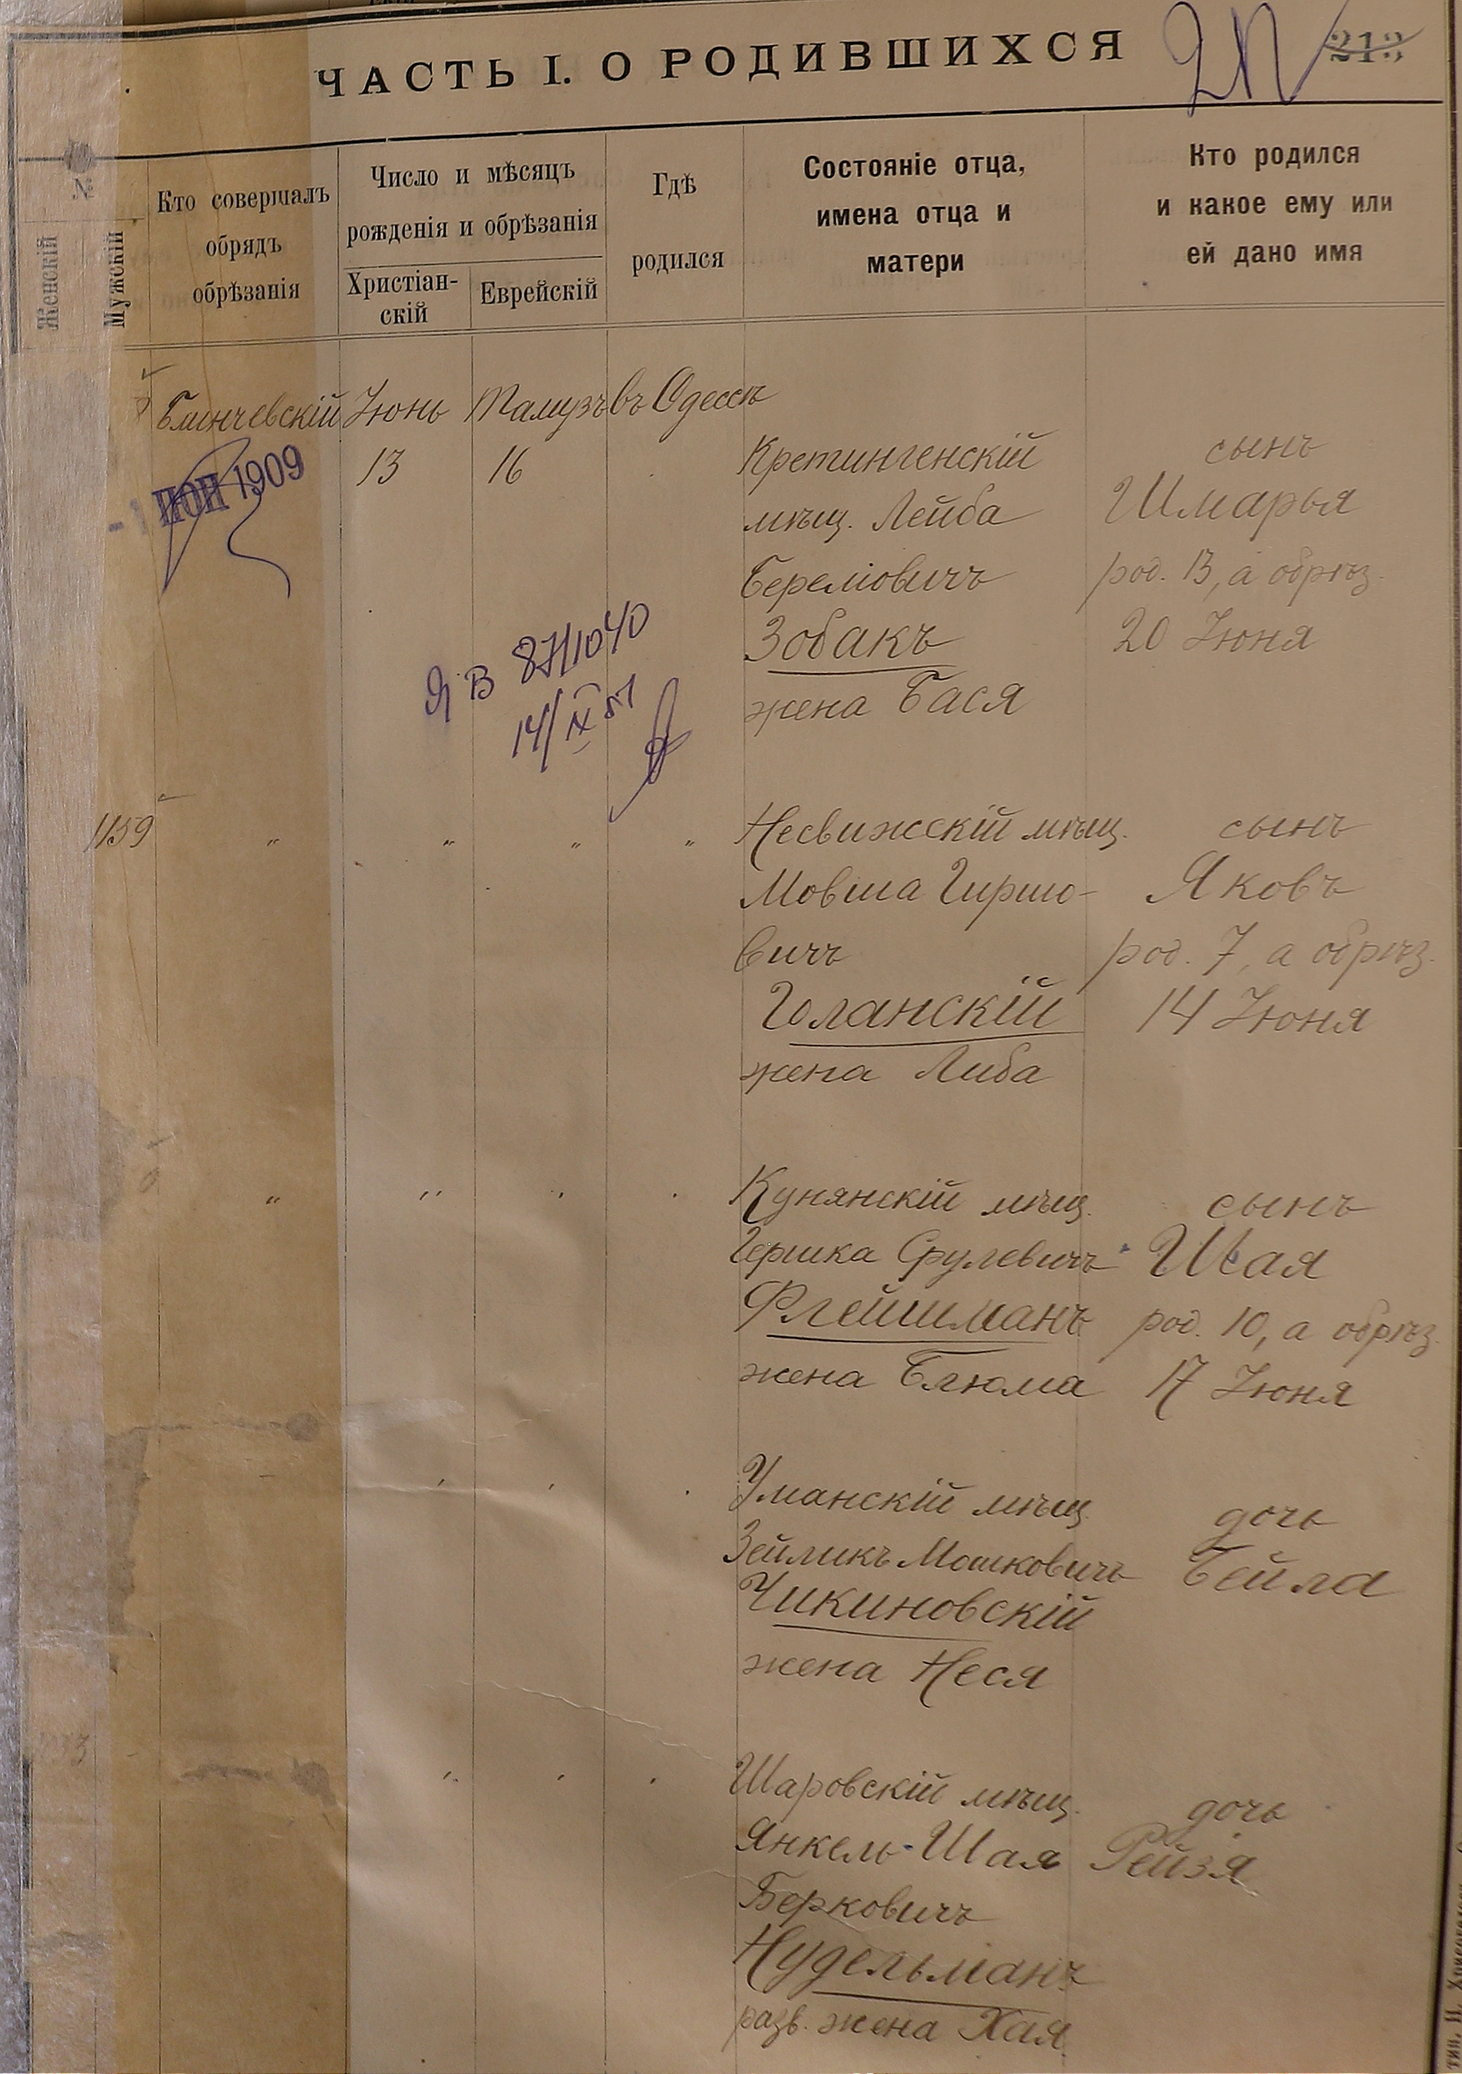 ЧАСТЬ I. О РОДИВШИХСЯ
213
№
Женскій
Мужскій
Кто совершалъ
обрядъ
обрѣзанія
Число и мѣсяцъ
рожденія и обрѣзанія
Христіан-
скій
Еврейскій
Гдѣ
родился
Состояніе отца,
имена отца и
матери
Кто родился
и какое ему или
ей дано имя
Юнь Тамузъ въ Одессѣ
13 16
1909
Кретингенскій
мѣщ. Лейба
Береліовичъ
Зобакъ
жена Бася
сынъ
Шмарья
род. 13, а обрѣз.
20 Юня
14/IX
1159 " " " "
Несвижскій мѣщ.
Мовша Гиршо-
вичъ
Голанскій
жена Либа
сынъ
Яковъ
род. 7, а обрѣз.
14 Юня
Кунянскій мѣщ.
Гершка Срулевичъ
Флейшманъ
жена Блюма
сынъ
Шая
род. 10, а обрѣз.
17 Юня
Уманскій мѣщ.
Зейликъ Мошковичъ
Чикиновскій
жена Неся
дочь
Бейла
Шаровскій мѣщ.
Янкель-Шая
Берковичъ
Нудельманъ
разв. жена Хая
дочь
Рейзя